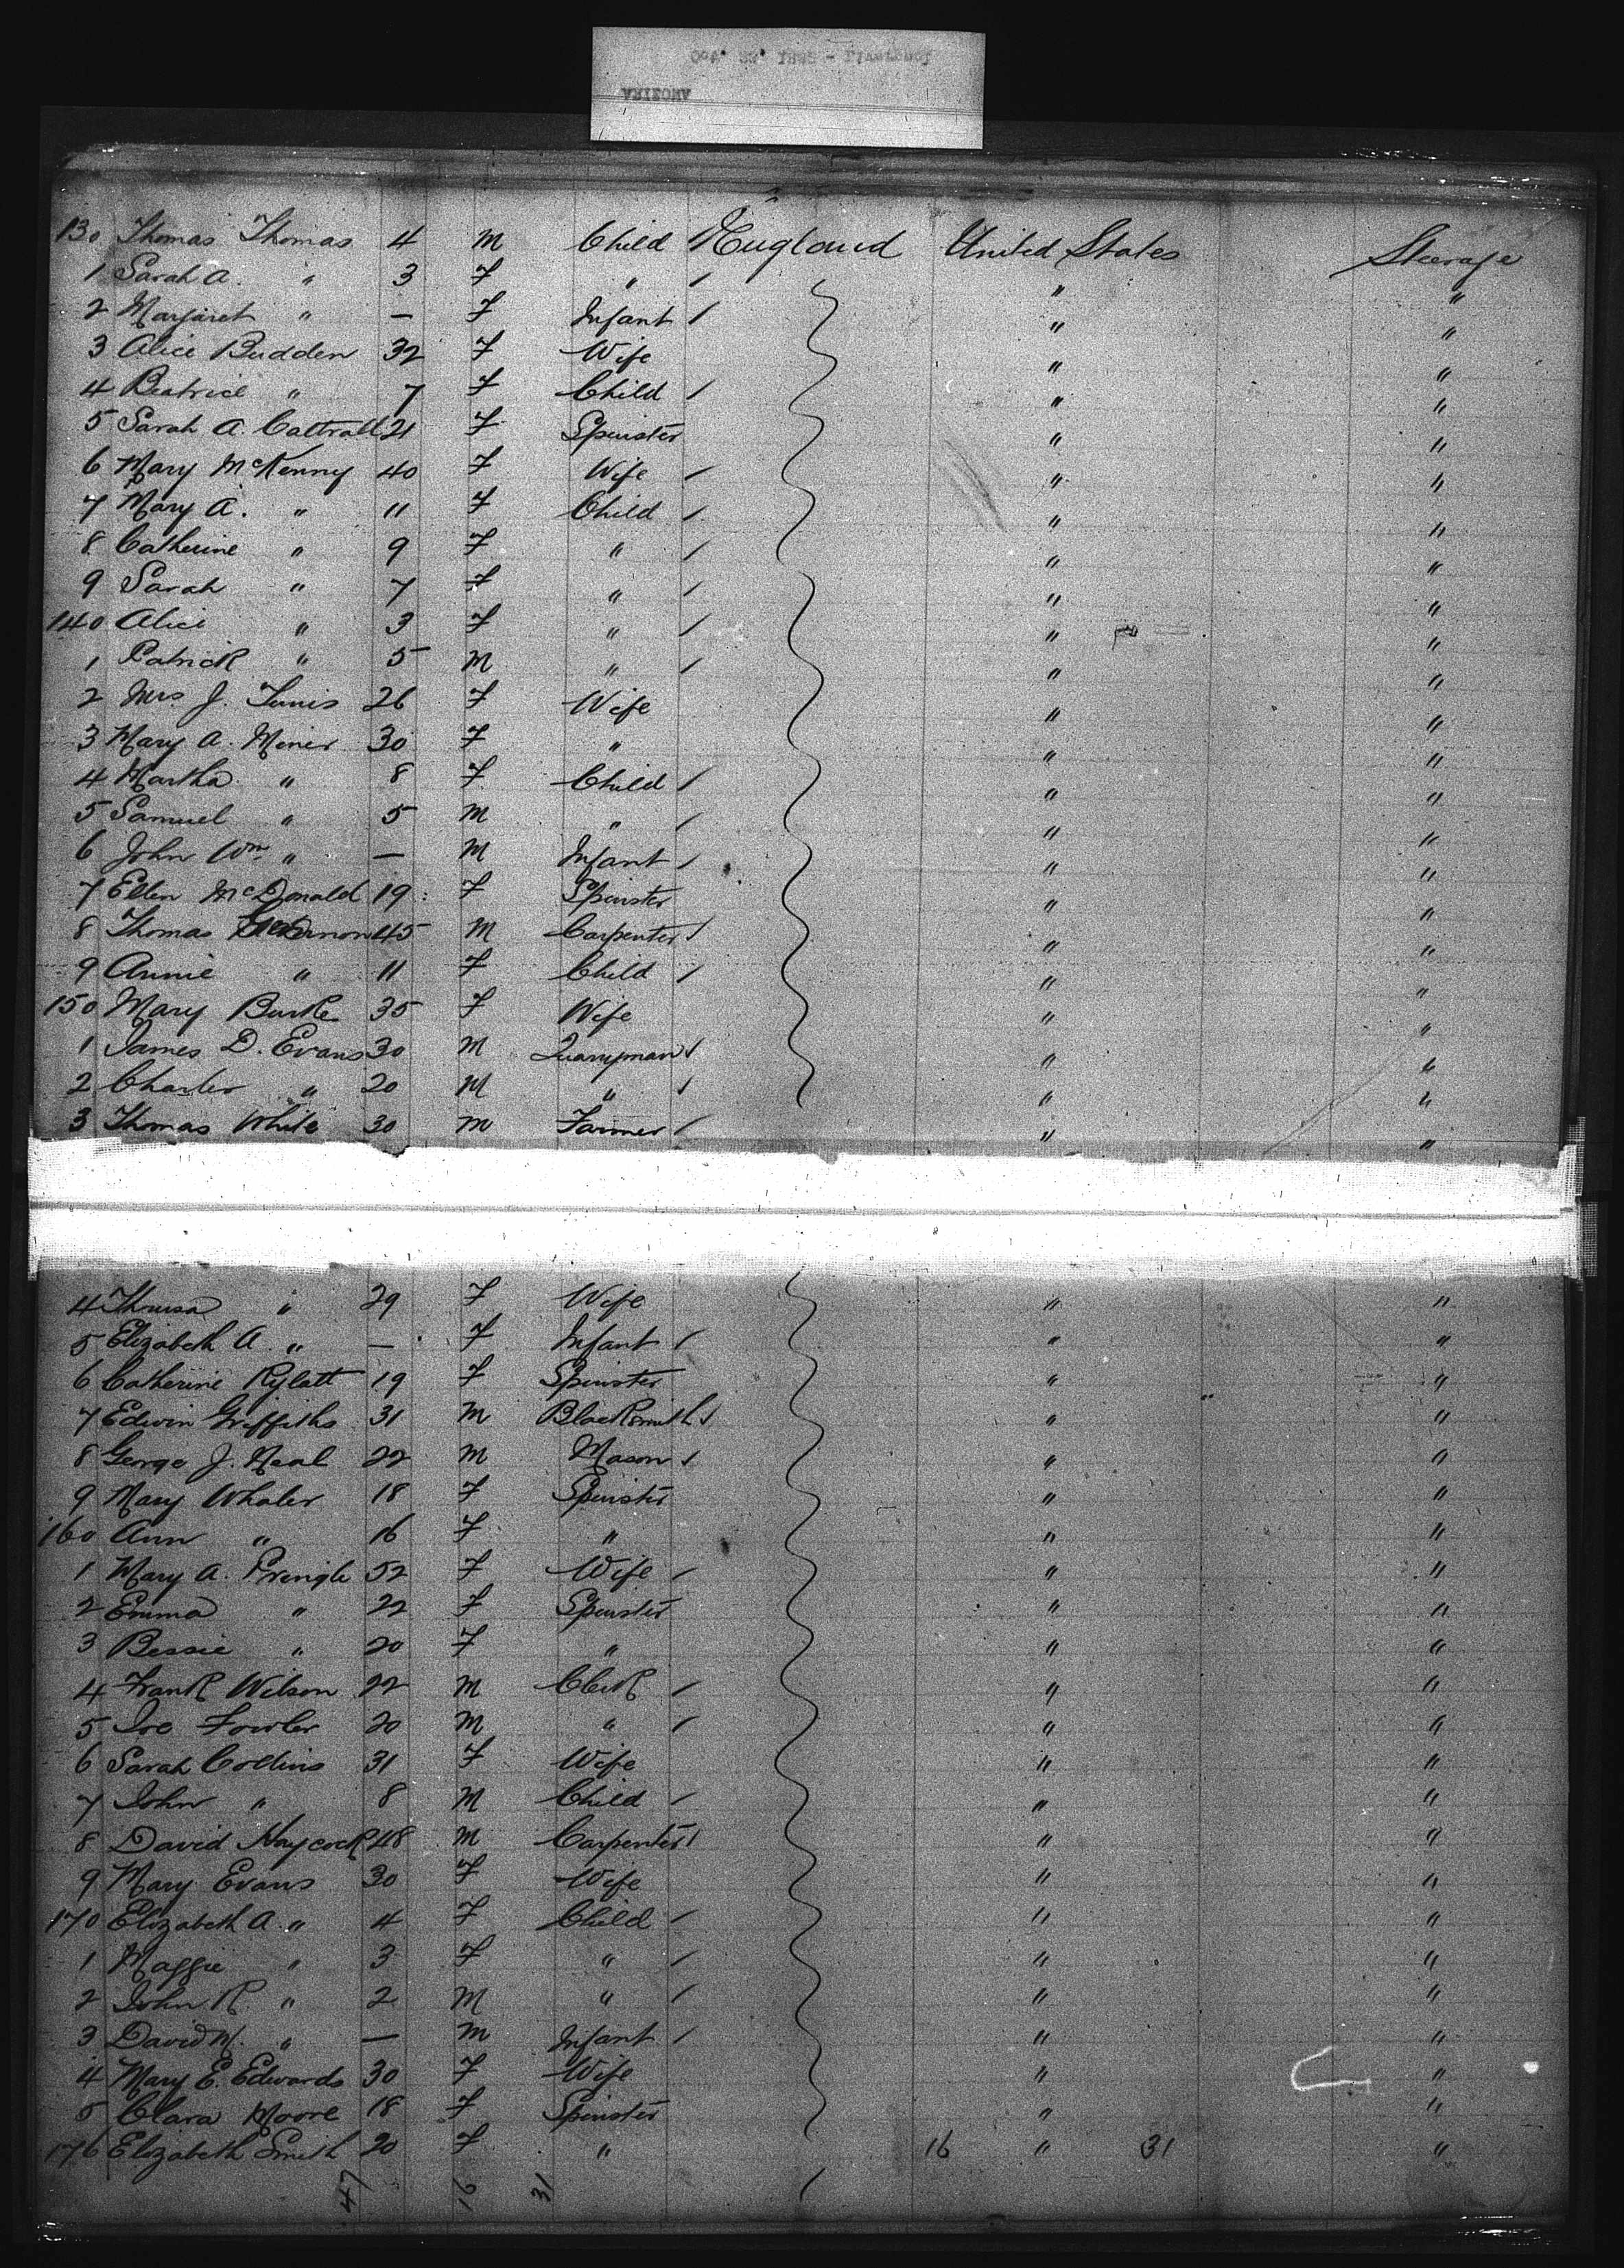 130 Thomas Thomas 4 M Child England United States Steerage
1 Sarah A. " 3 F " / " "
2 Margaret " — F Infant / " "
3 Alice Budden 32 F Wife " "
4 Beatrice " 7 F Child / " "
5 Sarah A. Cattrall 21 F Spinster " "
6 Mary McKenny 40 F Wife / " "
7 Mary A. " 11 F Child / " "
8 Catherine " 9 F " / " "
9 Sarah " 7 F " / " "
140 Alice " 3 F " / " "
1 Patrick " 5 M " / " "
2 Mrs. J. 26 F Wife " "
3 Mary A. Miner 30 F " " "
4 Martha " 8 F Child / " "
5 Samuel " 5 M " / " "
6 John Wm. " — M Infant / " "
7 Ellen McDonald 19 F Spinster " "
8 Thomas 45 M Carpenter / " "
9 Annie " 11 F Child / " "
150 Mary Burke 35 F Wife " "
1 James D. Evans 30 M Quarryman / " "
2 Charles " 20 M " / " "
3 Thomas White 30 M Farmer / " "
4 " 29 F Wife " "
5 Elizabeth A. " — F Infant / " "
6 Catherine Rylatt 19 F Spinster " "
7 Edwin Griffiths 31 M Blacksmith / " "
8 George J. Neal 22 M Mason / " "
9 Mary Whaler 18 F Spinster " "
160 Ann " 16 F " " "
1 Mary A. Pringle 52 F Wife / " "
2 Emma " 22 F Spinster " "
3 Bessie " 20 F " " "
4 Frank Wilson 22 M Clerk / " "
5 Joe Fowler 20 M " / " "
6 Sarah Collins 31 F Wife " "
7 John " 8 M Child / " "
8 David Haycock 48 M Carpenter / " "
9 Mary Evans 30 F Wife " "
170 Elizabeth A. " 4 F Child / " "
1 Maggie " 3 F " / " "
2 John R. " 2 M " / " "
3 David M. " — M Infant / " "
4 Mary E. Edwards 30 F Wife " "
5 Clara Moore 18 F Spinster " "
176 Elizabeth Smith 20 F " 16 " 31 "
47 16 31